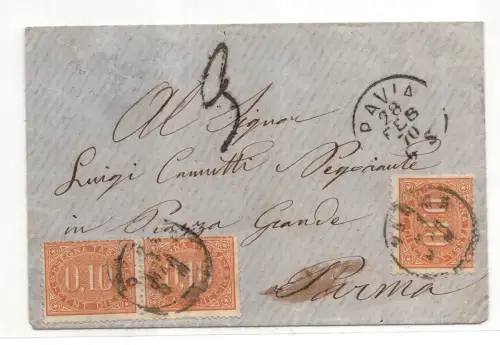 3
PAVIA
28
FEB
70
Al Signor
Luigi Negoziante
in Piazza Grande
Parma
0,10
0,10
0,10